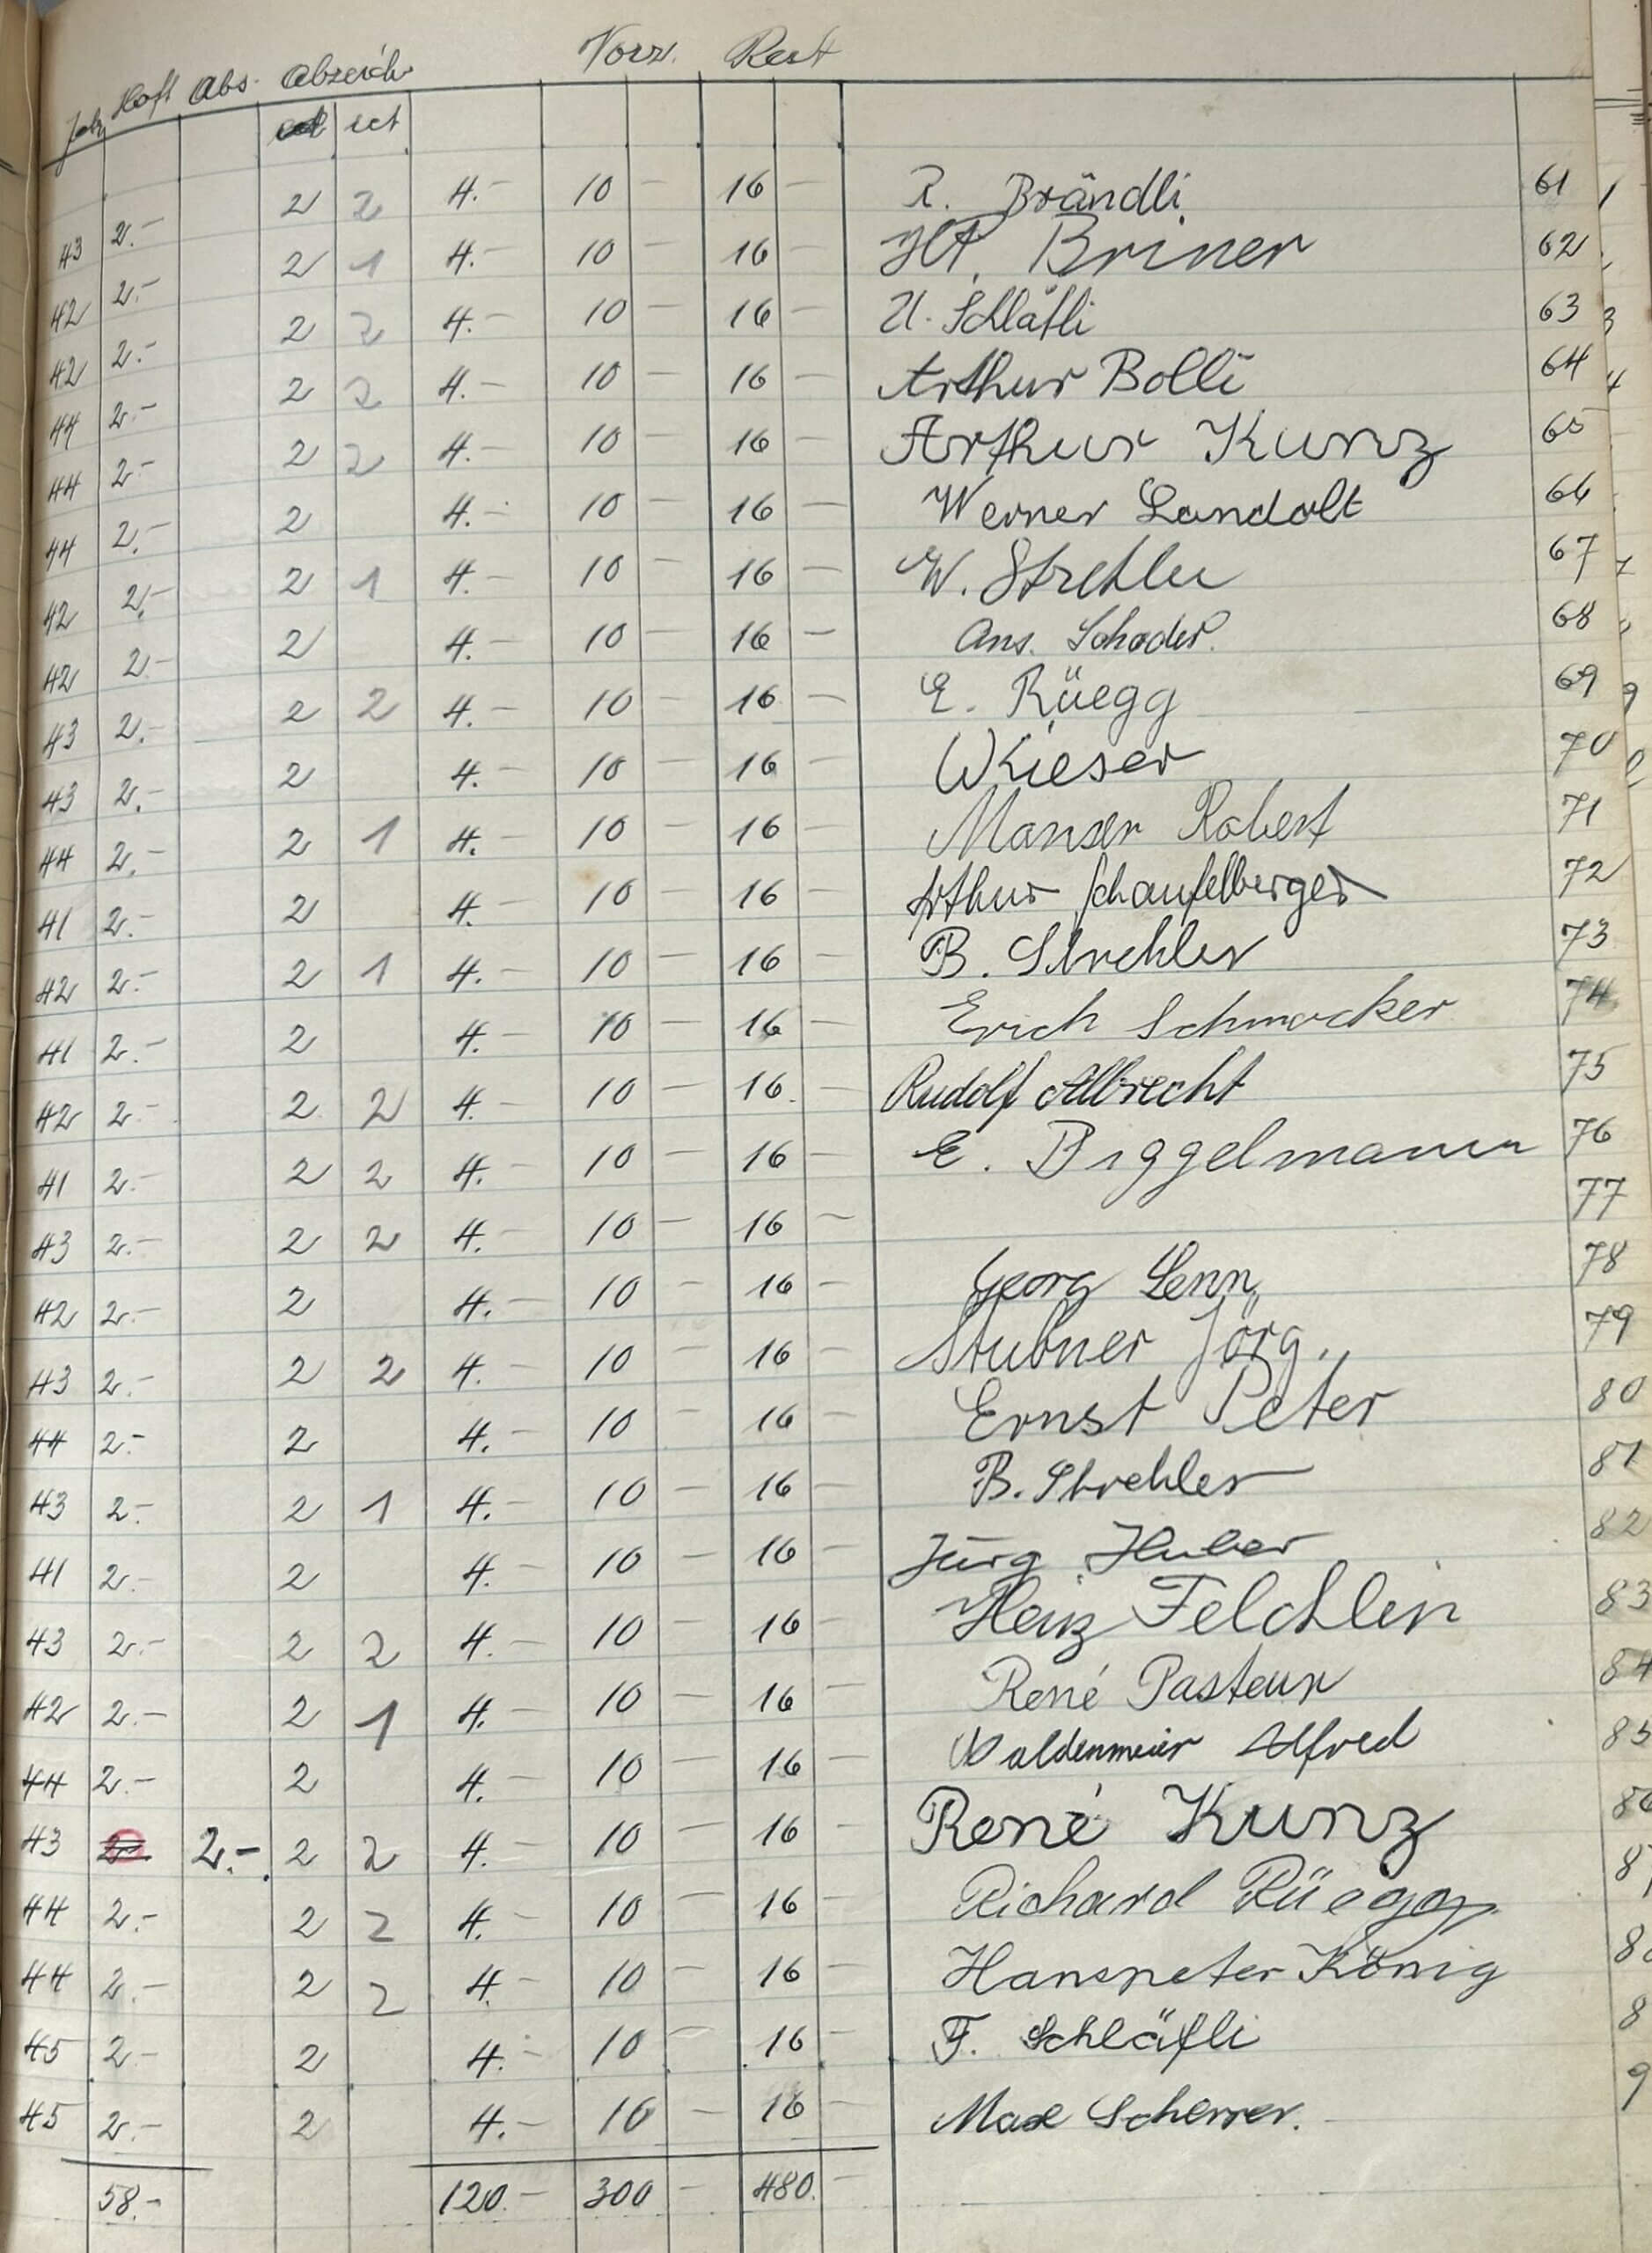 Jahr Haft Abs. Abzeich. Vorz. Rest
erh ect
43 2.- 2 2 4.- 10 - 16 - R. Brändli 61
42 2.- 2 1 4.- 10 - 16 - Briner 62
42 2.- 2 2 4.- 10 - 16 - U. Schläfli 63
44 2.- 2 2 4.- 10 - 16 - Arthur Bolli 64
44 2.- 2 2 4.- 10 - 16 - Arthur Kunz 65
44 2.- 2 4.- 10 - 16 - Werner Landolt 66
42 2.- 2 1 4.- 10 - 16 - W. Strehler 67
42 2.- 2 4.- 10 - 16 - Ans. Schoder. 68
43 2.- 2 2 4.- 10 - 16 - E. Rüegg 69
43 2.- 2 4.- 10 - 16 - W Kieser 70
44 2.- 2 1 4.- 10 - 16 - Manser Robert 71
41 2.- 2 4.- 10 - 16 - Arthur Schaufelberger 72
42 2.- 2 1 4.- 10 - 16 - B. Strehler 73
41 2.- 2 4.- 10 - 16 - Erich Schmocker 74
42 2.- 2 2 4.- 10 - 16.- Rudolf Albrecht 75
41 2.- 2 2 4.- 10 - 16 - E. Biggelmann 76
43 2.- 2 2 4.- 10 - 16 - 77
42 2.- 2 4.- 10 - 16 - Georg Senn 78
43 2.- 2 2 4.- 10 - 16 - Stubner Jörg. 79
44 2.- 2 4.- 10 - 16 - Ernst Peter 80
43 2.- 2 1 4.- 10 - 16 - B. Strehler 81
41 2.- 2 4.- 10 - 16 - Jürg Huber 82
43 2.- 2 2 4.- 10 - 16 - Heinz Felchlin 83
42 2.- 2 1 4.- 10 - 16 - René Pasteur 84
44 2.- 2 4.- 10 - 16 - Waldenmeier Alfred 85
43 2.- 2.- 2 2 4.- 10 - 16 - René Kunz 86
44 2.- 2 2 4.- 10 - 16 - Richard Rüegg 8
44 2.- 2 2 4.- 10 - 16 - Hanspeter König 8
45 2.- 2 4.- 10 - 16 - F. Schläfli 8
45 2.- 2 4.- 10 - 16 - Max Scherrer. 9
58.- 120.- 300 - 480.-